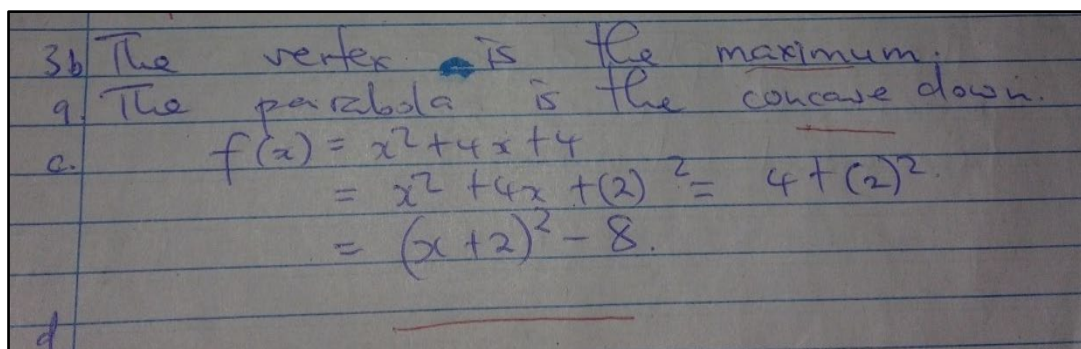 3b The vertex is the maximum.
a. The parabola is the concave down.
c. f(x) = x² + 4x + 4
= x² + 4x + (2)² = 4 + (2)².
= (x + 2)² - 8.
d